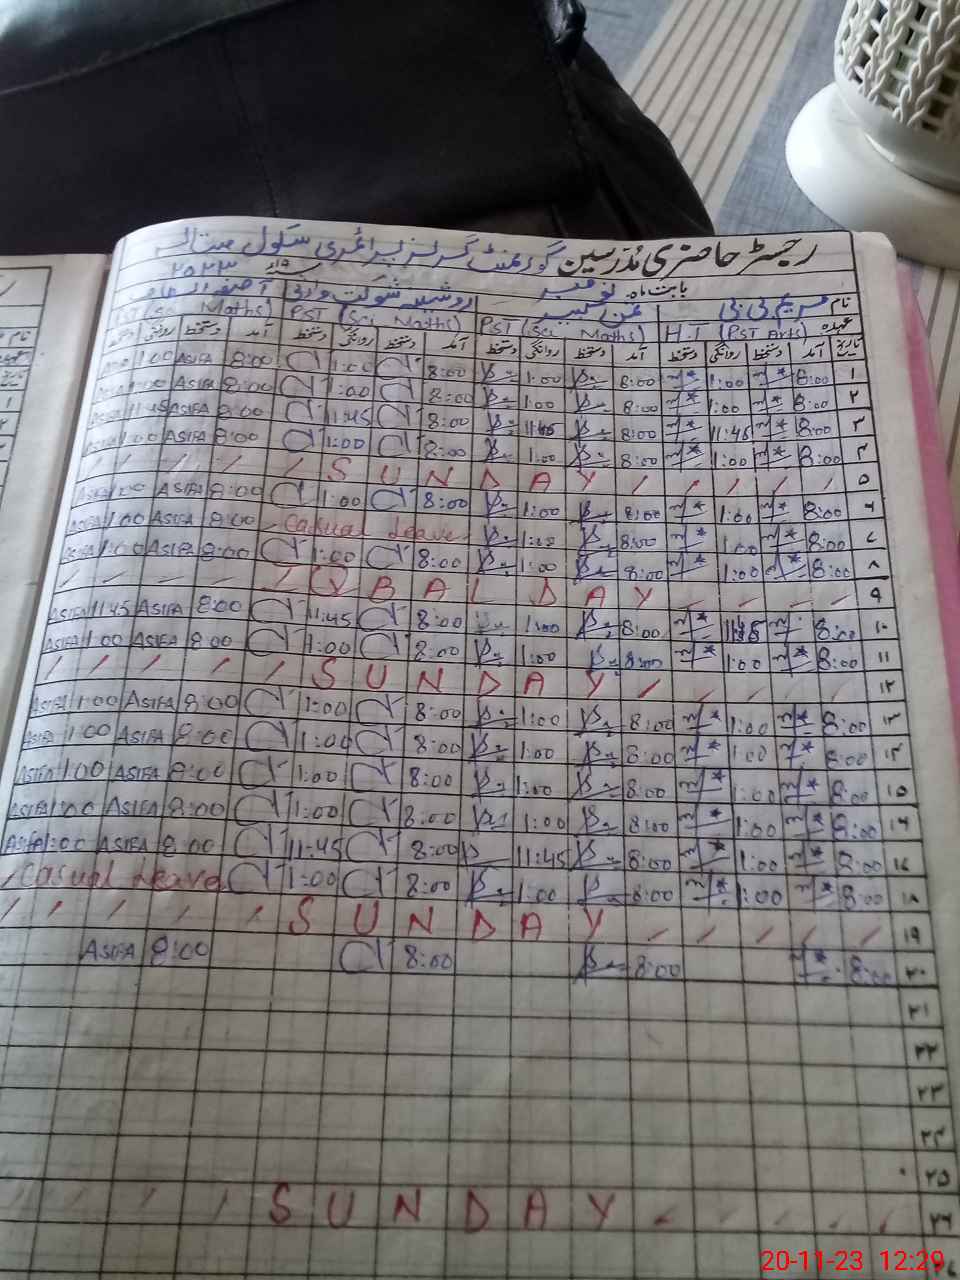 رجسٹر حاضری مدرسین گورنمنٹ گرلز پرائمری سکول
بابت ماہ نومبر سنہ ۲۰۲۳
نام مریم بی بی روشینہ شوکت
عہدہ H.T (PST Arts) PST (Sci Maths) PST (Sci Maths) PST (Sci Maths)
تاریخ آمد دستخط روانگی دستخط آمد دستخط روانگی دستخط آمد دستخط روانگی دستخط آمد دستخط روانگی دستخط
۱ 8:00 1:00 8:00 1:00 8:00 1:00 8:00 ASIFA 1:00
۲ 8:00 1:00 8:00 1:00 8:00 1:00 8:00 ASIFA 1:00
۳ 8:00 11:45 8:00 11:45 8:00 11:45 8:00 ASIFA 11:45
۴ 8:00 1:00 8:00 1:00 8:00 1:00 8:00 ASIFA 1:00
۵ SUNDAY
۶ 8:00 1:00 8:00 1:00 8:00 1:00 8:00 ASIFA 1:00
۷ 8:00 1:00 8:00 1:00 Casual Leave 8:00 ASIFA 1:00
۸ 8:00 1:00 8:00 1:00 8:00 1:00 8:00 ASIFA 1:00
۹ IQBAL DAY
۱۰ 8:00 8:00 1:00 8:00 11:45 8:00 ASIFA 11:45 ASIFA
۱۱ 8:00 1:00 8:00 1:00 8:00 1:00 8:00 ASIFA 1:00 ASIFA
۱۲ SUNDAY
۱۳ 8:00 1:00 8:00 1:00 8:00 1:00 8:00 ASIFA 1:00 ASIFA
۱۴ 8:00 1:00 8:00 1:00 8:00 1:00 8:00 ASIFA 1:00 ASIFA
۱۵ 8:00 1:00 8:00 1:00 8:00 1:00 8:00 ASIFA 1:00 ASIFA
۱۶ 8:00 1:00 8:00 1:00 8:00 1:00 8:00 ASIFA 1:00 ASIFA
۱۷ 8:00 1:00 8:00 11:45 8:00 11:45 8:00 ASIFA 1:00 ASIFA
۱۸ 8:00 1:00 8:00 1:00 8:00 1:00 Casual Leave
۱۹ SUNDAY
۲۰ 8:00 8:00 8:00 8:00 ASIFA
۲۱
۲۲
۲۳
۲۴
۲۵
۲۶ SUNDAY
20-11-23 12:29